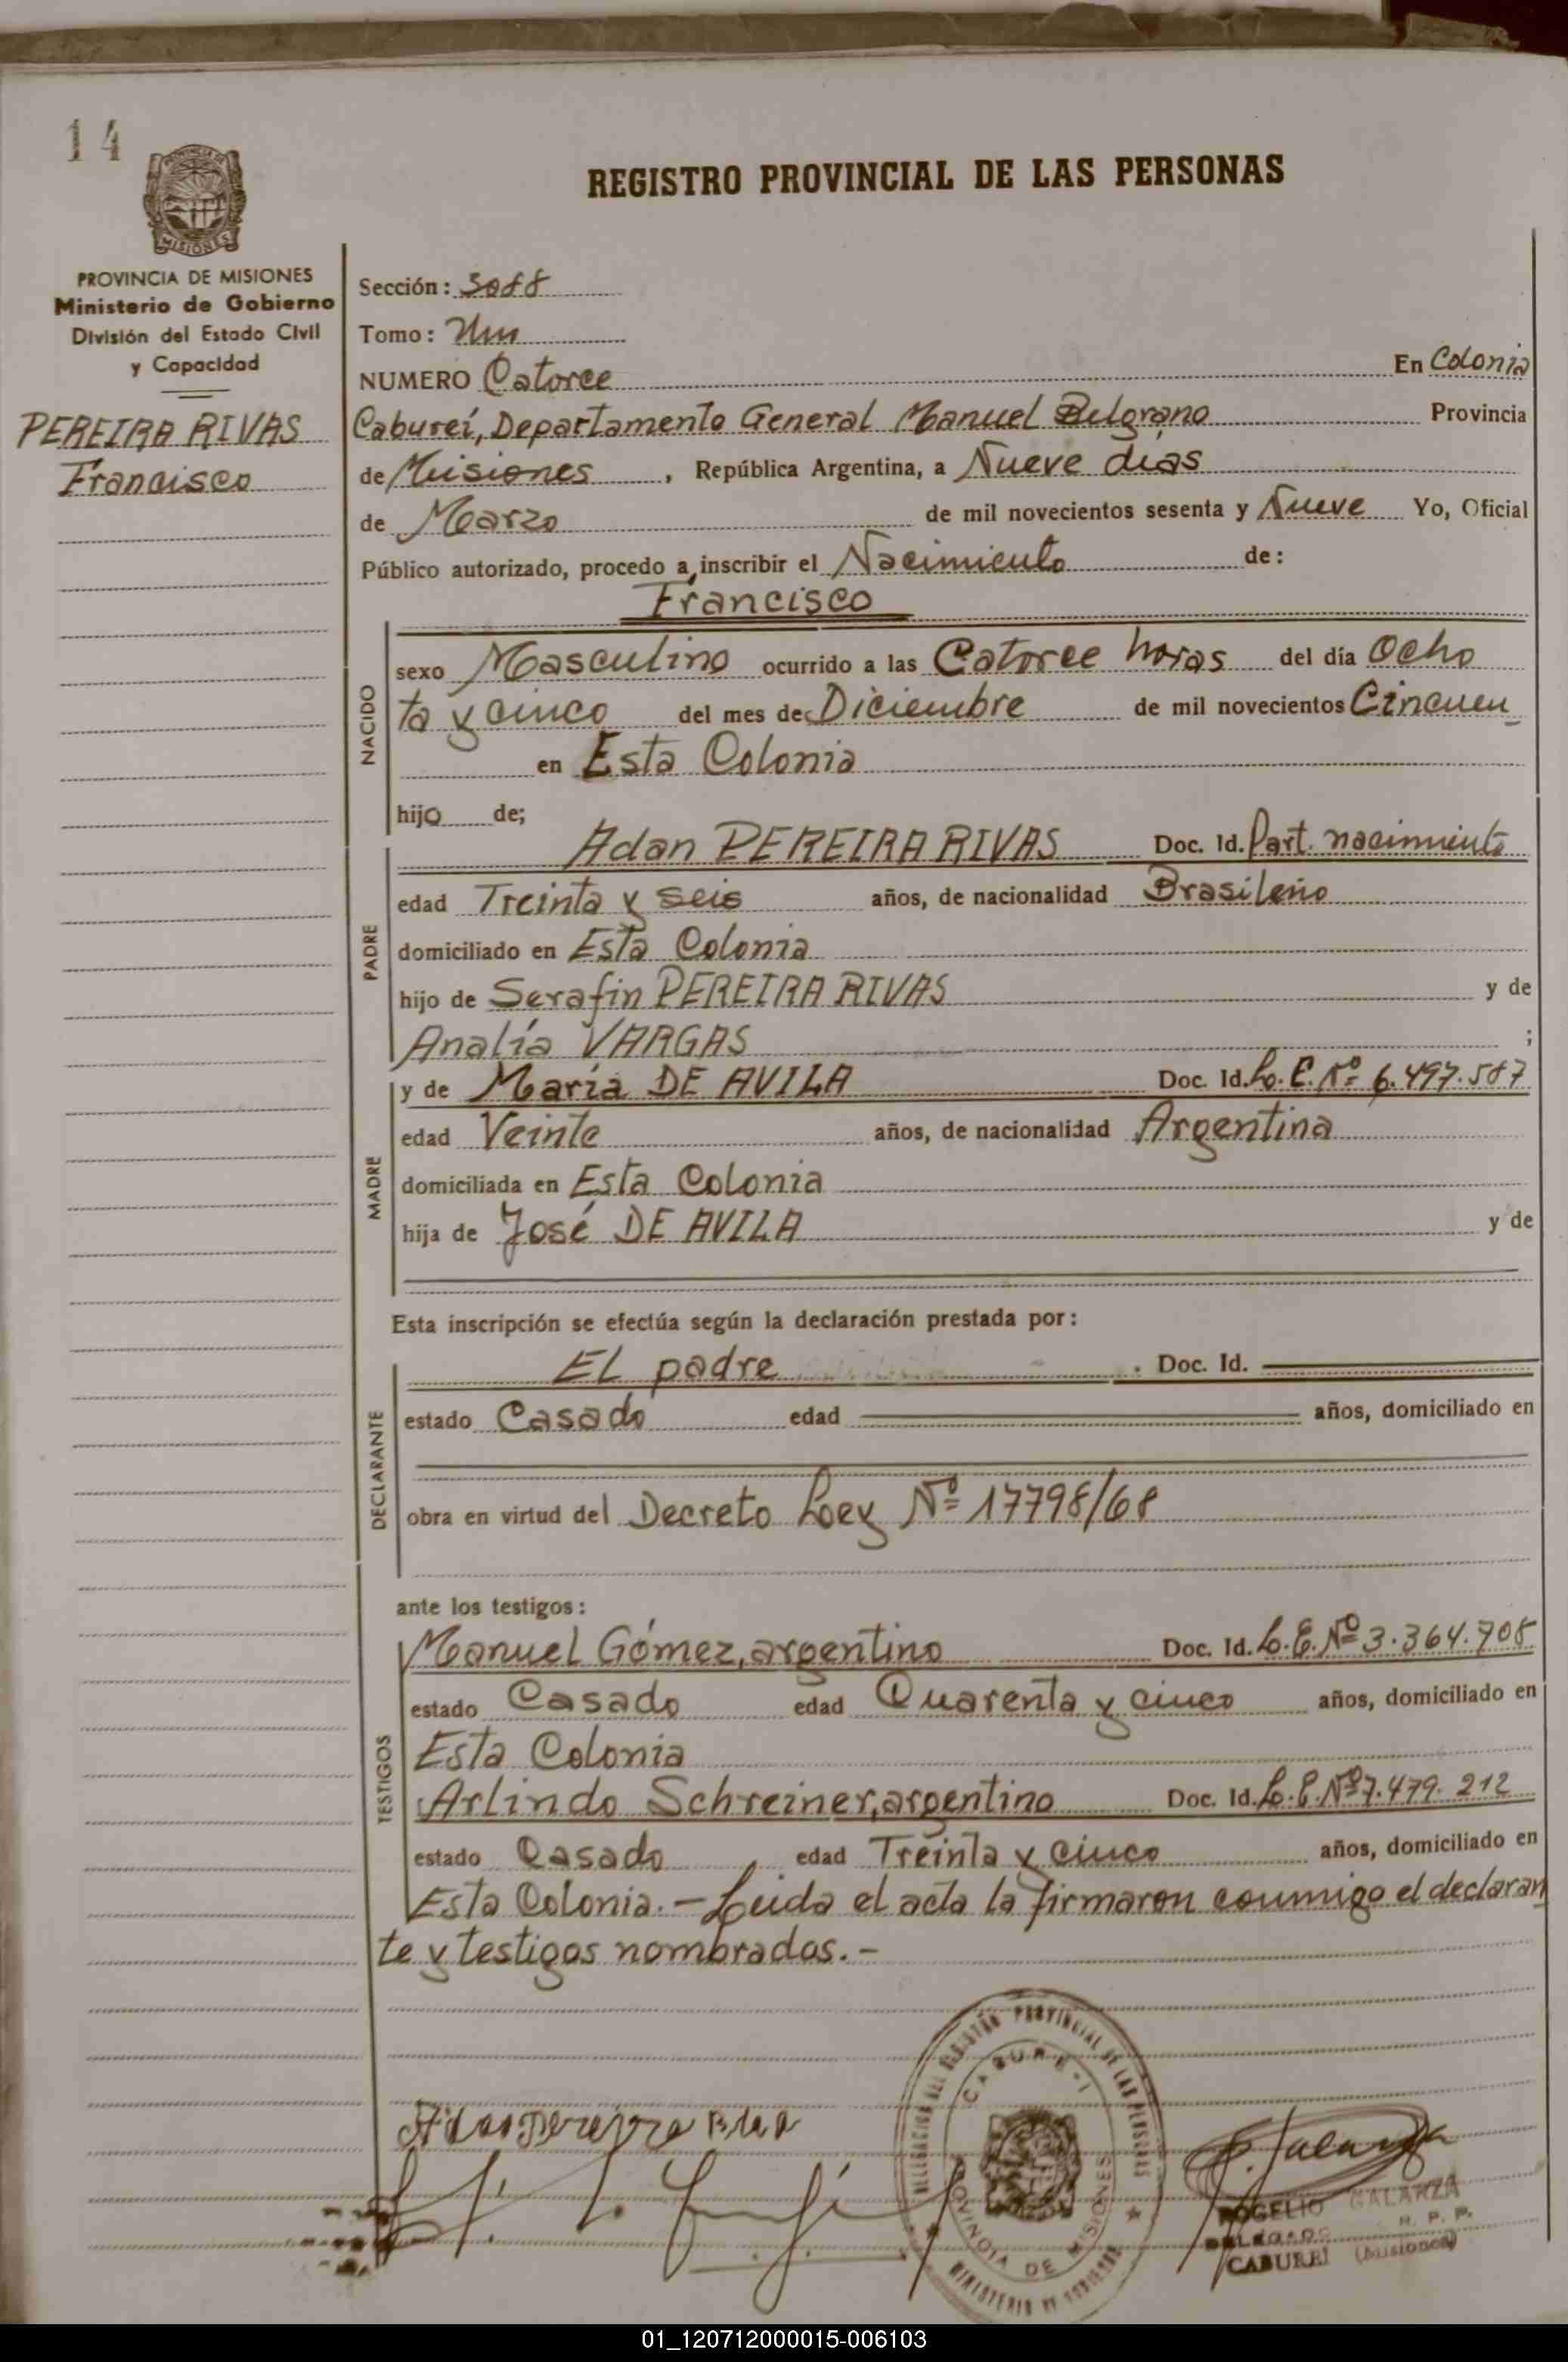 14
PROVINCIA DE MISIONES
REGISTRO PROVINCIAL DE LAS PERSONAS
PROVINCIA DE MISIONES
Ministerio de Gobierno
División del Estado Civil
y Capacidad
PEREIRA RIVAS
Francisco
Sección: 3088
Tomo: Uno
NUMERO Catorce En Colonia
Cabureí, Departamento General Manuel Belgrano Provincia
de Misiones, República Argentina, a Nueve días
de Marzo de mil novecientos sesenta y Nueve Yo, Oficial
Público autorizado, procedo a inscribir el Nacimiento de:
Francisco
NACIDO
sexo Masculino ocurrido a las Catorce horas del día Ocho
del mes de Diciembre de mil novecientos Cincuen
ta y cinco
en Esta Colonia
hijo de;
PADRE
Adan PEREIRA RIVAS Doc. Id. Part. nacimiento
edad Treinta y seis años, de nacionalidad Brasileño
domiciliado en Esta Colonia
hijo de Serafin PEREIRA RIVAS y de
Analía VARGAS ;
MADRE
y de María DE AVILA Doc. Id. L. C. Nº 6.497.587
edad Veinte años, de nacionalidad Argentina
domiciliada en Esta Colonia
hija de José DE AVILA y de
Esta inscripción se efectúa según la declaración prestada por:
DECLARANTE
El padre . Doc. Id.
estado Casado edad años, domiciliado en
obra en virtud del Decreto Ley Nº 17798/68
ante los testigos:
TESTIGOS
Manuel Gómez, argentino Doc. Id. L. E. Nº 3.364.708
estado Casado edad Cuarenta y cinco años, domiciliado en
Esta Colonia
Arlindo Schreiner, argentino Doc. Id. L. E. Nº 7.479.212
estado Casado edad Treinta y cinco años, domiciliado en
Esta Colonia. - Leida el acta la firmaron conmigo el declaran
te y testigos nombrados. -
DELEGACION DEL REGISTRO PROVINCIAL DE LAS PERSONAS
CABURE-I
PROVINCIA DE MISIONES
MINISTERIO DE GOBIERNO
R. Galarza
ROGELIO GALARZA
R. P. P.
CABUREI (Misiones)
01_120712000015-006103